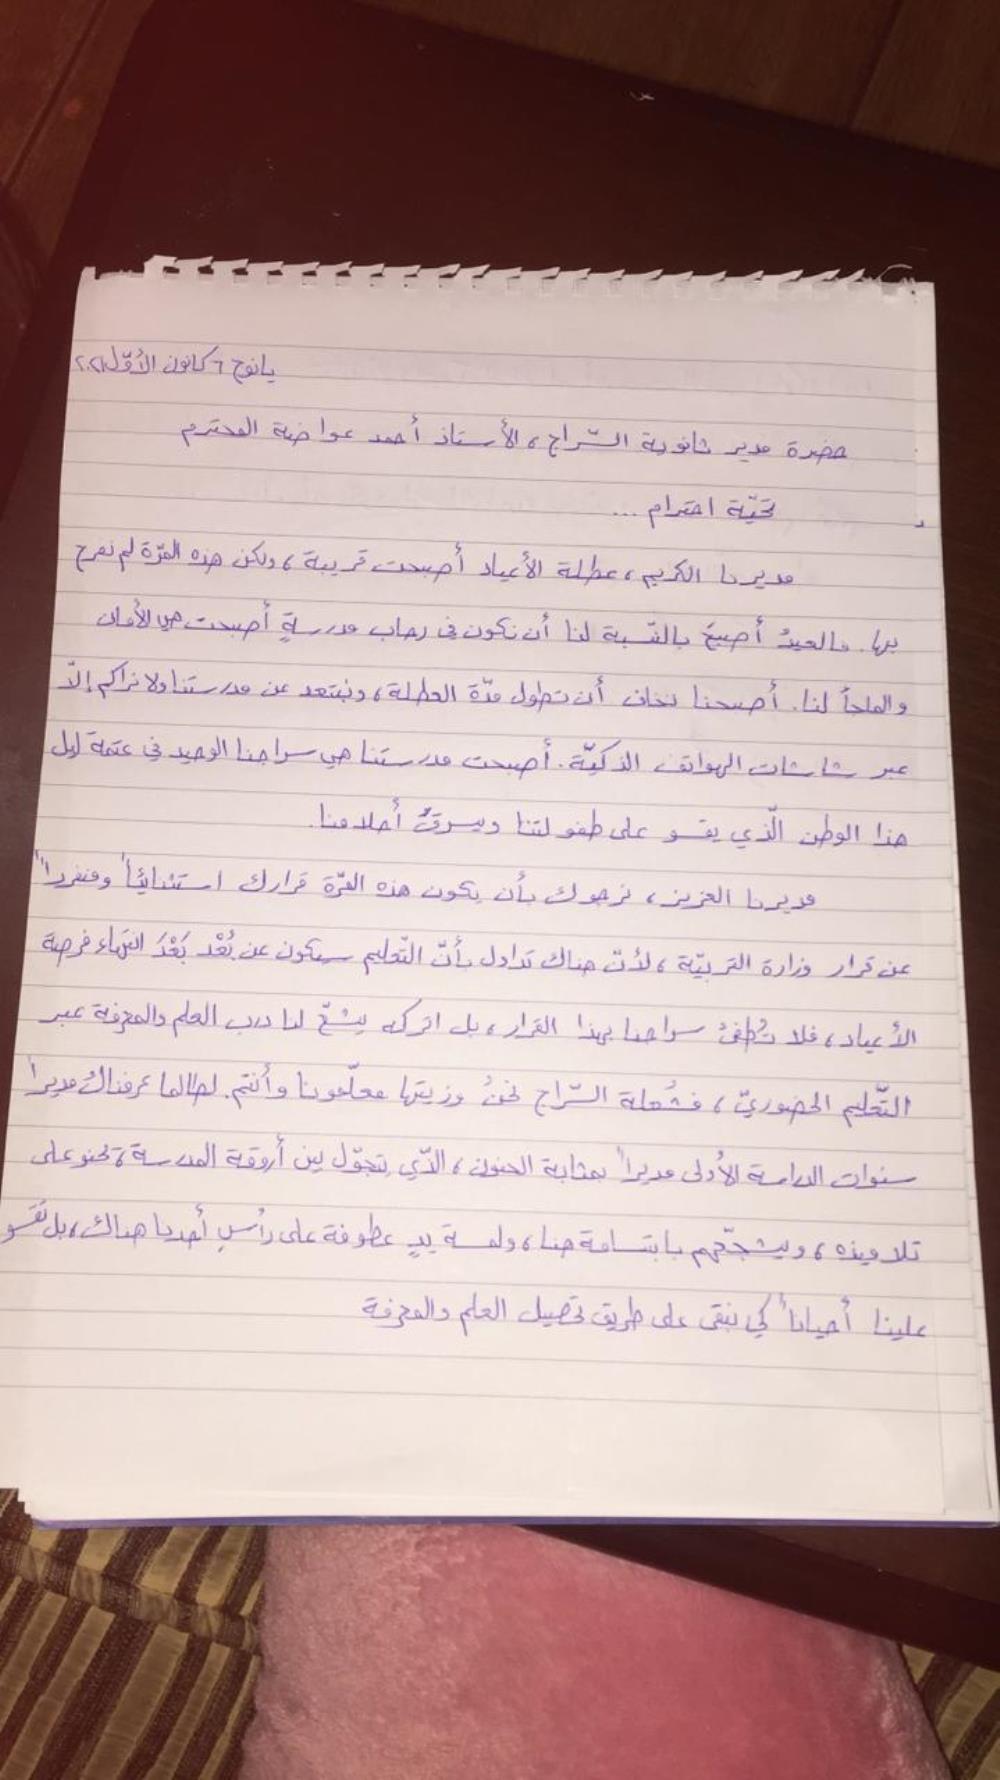 يانوح ٦ كانون الأوّل ٢٠٢١
حضرة مدير ثانوية السّراج، الأستاذ أحمد عواضة المحترم
تحيّة احترام ...
مديرنا الكريم، عطلة الأعياد أصبحت قريبة، ولكن هذه المّرة لم نفرح
بها. فالعيدُ أصبحَ بالنّسبة لنا أن نكون في رحاب مدرسةٍ أصبحت هي الأمان
والملجأ لنا. أصبحنا نخاف أن تطول مدّة العطلة، ونبتعد عن مدرستنا ولا نراكم إلّا
عبر شاشات الهواتف الذكيّة. أصبحت مدرستنا هي سراجنا الوحيد في عتمة ليل
هذا الوطن الّذي يقسو على طفولتنا ويسرقُ أحلامنا.
مديرنا العزيز، نرجوك بأن يكون هذه المّرة قرارك استثنائياً ومنفرداً
عن قرار وزارة التربيّة، لأنّ هناك تداول بأنّ التّعليم سيكون عن بُعْد بَعْدَ انتهاء فرصة
الأعياد، فلا تُطفئ سراجنا بهذا القرار، بل اتركه يشعّ لنا درب العلم والمعرفة عبر
التّعليم الحضوريّ، فشعلة السّراج نحنُ وزيتها معلّمونا وأنتم. لطالما عرفناكَ مديراً
سنوات الدراسة الأولى مديراً بمثابة الحنون، الذّي يتجوّل بين أروقة المدرسة، تحنو على
تلاميذه، ويشجّعهم بابتسامة هنا، ولمسة يدٍ عطوفة على رأسِ أحدنا هناك، بل تقسو
علينا أحياناً كي نبقى على طريق تحصيل العلم والمعرفة